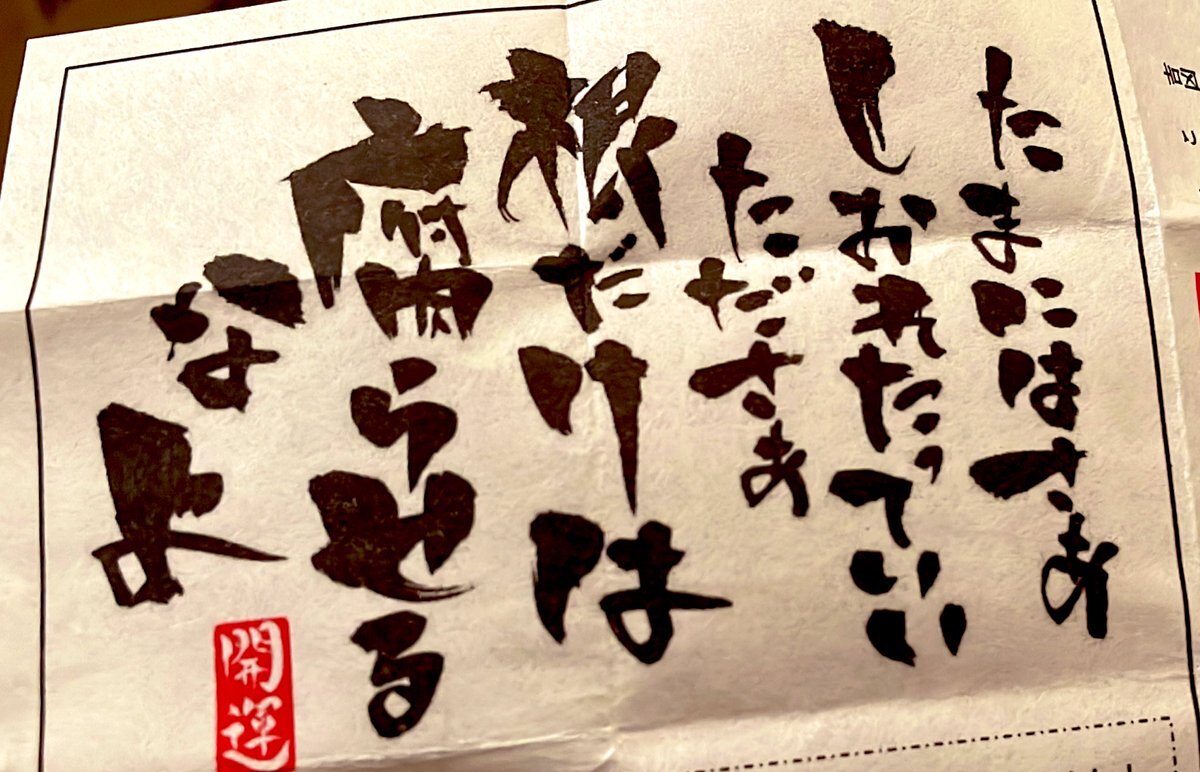 たまにはさぁ
しおれたっていい
ただださぁ
根だけは
腐らせる
なよ
開運